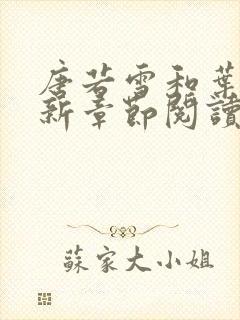 唐若雪和葉
新章節閱讀
蘇家大小姐